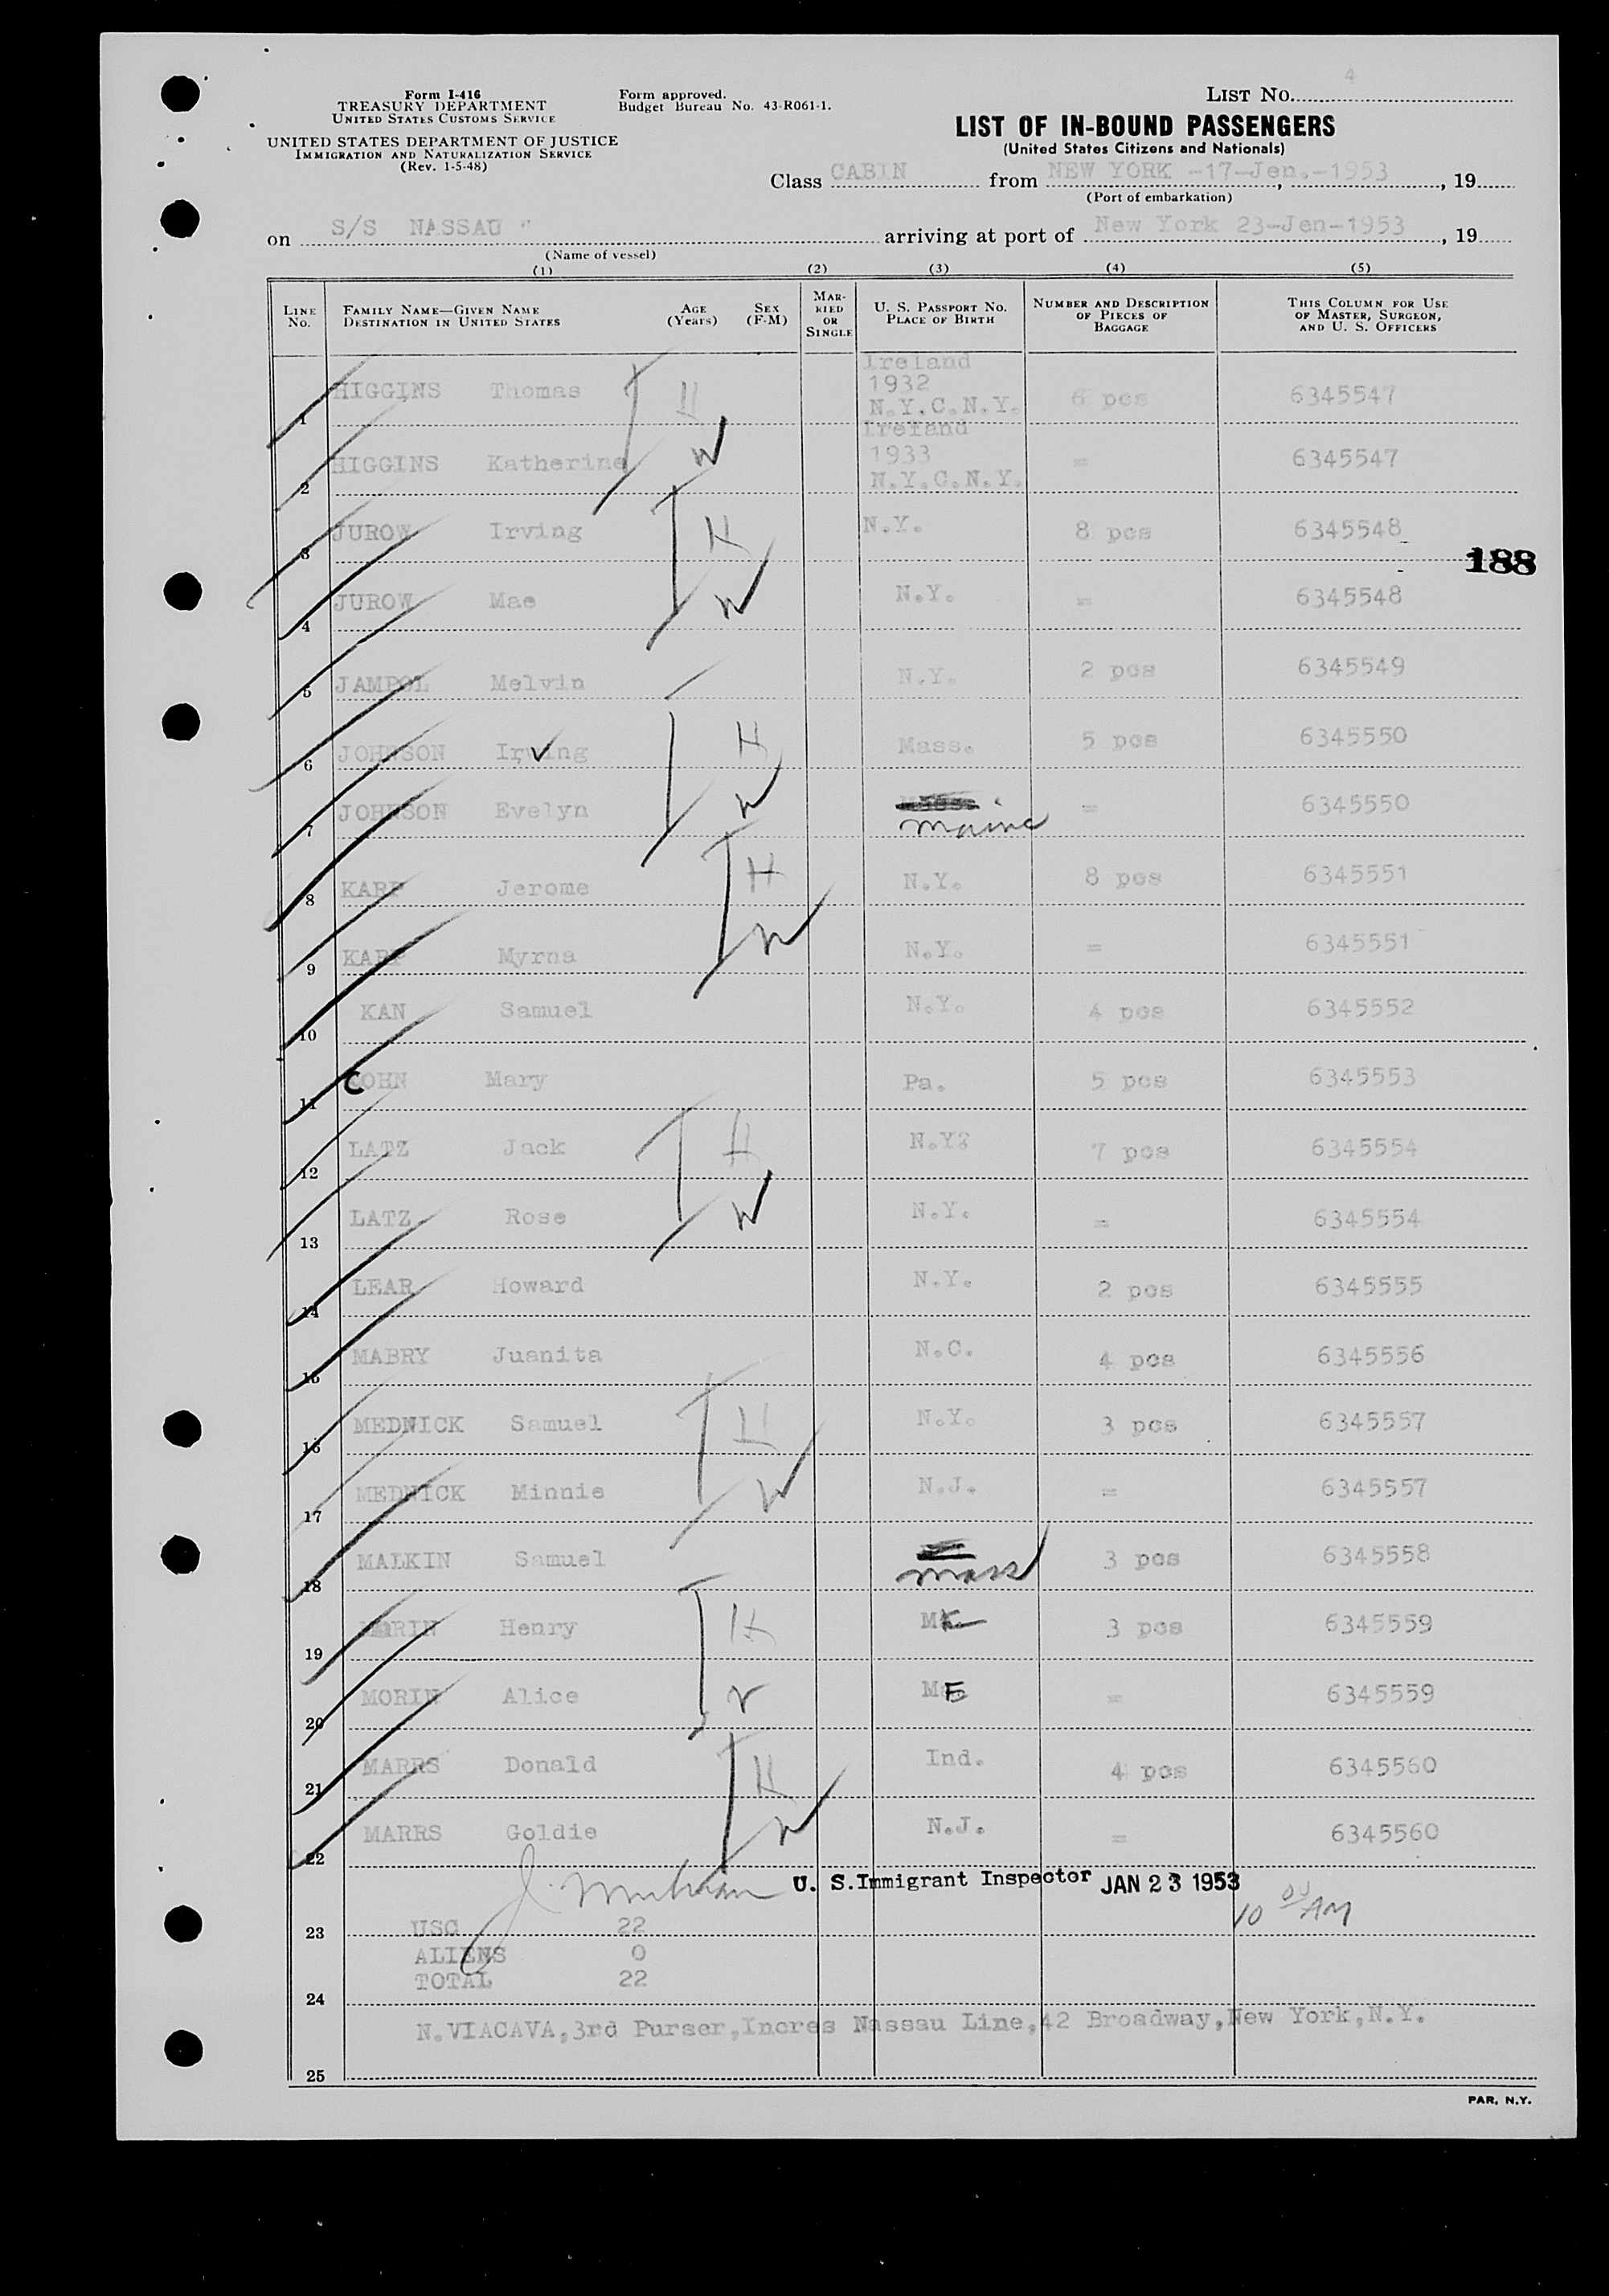 4
Form I-416
TREASURY DEPARTMENT
UNITED STATES CUSTOMS SERVICE
UNITED STATES DEPARTMENT OF JUSTICE
IMMIGRATION AND NATURALIZATION SERVICE
(Rev. 1-5-48)
Form approved.
Budget Bureau No. 43-R061-1.
LIST NO.
LIST OF IN-BOUND PASSENGERS
(United States Citizens and Nationals)
Class CABIN from NEW YORK -17-Jen.-1953, 19
(Port of embarkation)
on S/S NASSAU " arriving at port of New York 23-Jen-1953, 19
(Name of vessel)
(1) (2) (3) (4) (5)
LINE No. FAMILY NAME—GIVEN NAME DESTINATION IN UNITED STATES AGE (Years) SEX (F-M) MARRIED OR SINGLE U. S. PASSPORT NO. PLACE OF BIRTH NUMBER AND DESCRIPTION OF PIECES OF BAGGAGE THIS COLUMN FOR USE OF MASTER, SURGEON, AND U. S. OFFICERS
1 HIGGINS Thomas H Ireland 1932 N.Y.C.N.Y. 6 pcs 6345547
2 HIGGINS Katherine W Ireland 1933 N.Y.C.N.Y. = 6345547
3 JUROW Irving H N.Y. 8 pcs 6345548
188
4 JUROW Mae W N.Y. = 6345548
5 JAMPOL Melvin N.Y. 2 pcs 6345549
6 JOHNSON Irving H Mass. 5 pcs 6345550
7 JOHNSON Evelyn W Maine = 6345550
8 KARP Jerome H N.Y. 8 pcs 6345551
9 KARP Myrna W N.Y. = 6345551
10 KAN Samuel N.Y. 4 pcs 6345552
11 COHN Mary Pa. 5 pcs 6345553
12 LATZ Jack H N.Y? 7 pcs 6345554
13 LATZ Rose W N.Y. = 6345554
14 LEAR Howard N.Y. 2 pcs 6345555
15 MABRY Juanita N.C. 4 pcs 6345556
16 MEDNICK Samuel H N.Y. 3 pcs 6345557
17 MEDNICK Minnie W N.J. = 6345557
18 MALKIN Samuel Mass 3 pcs 6345558
19 MORIN Henry H ME 3 pcs 6345559
20 MORIN Alice ME = 6345559
21 MARRS Donald H Ind. 4 pcs 6345560
22 MARRS Goldie W N.J. = 6345560
U. S. Immigrant Inspector JAN 23 1953
10 00 AM
23 USC 22
ALIENS 0
TOTAL 22
24
N.VIACAVA,3rd Purser,Incres Nassau Line,42 Broadway,New York,N.Y.
25
PAR, N.Y.